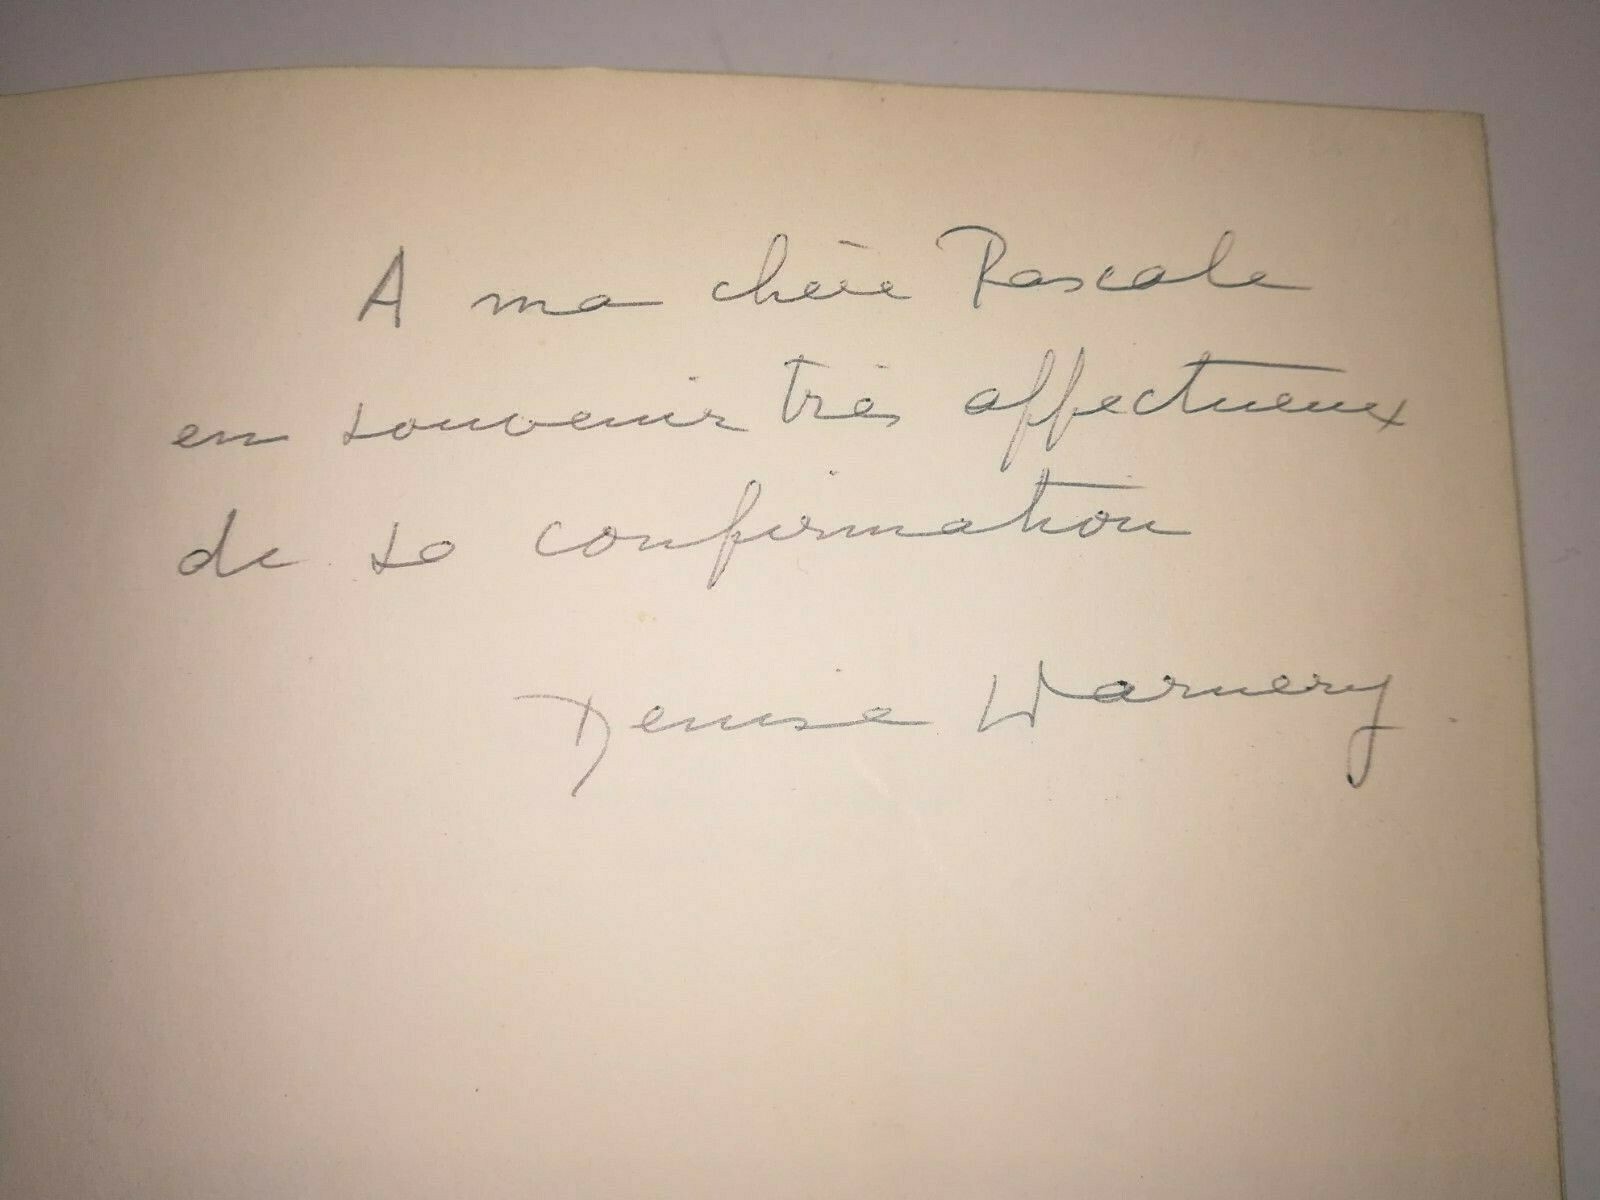 A ma chère Pascale
en souvenir très affectueux
de sa confirmation
Denise Warnery